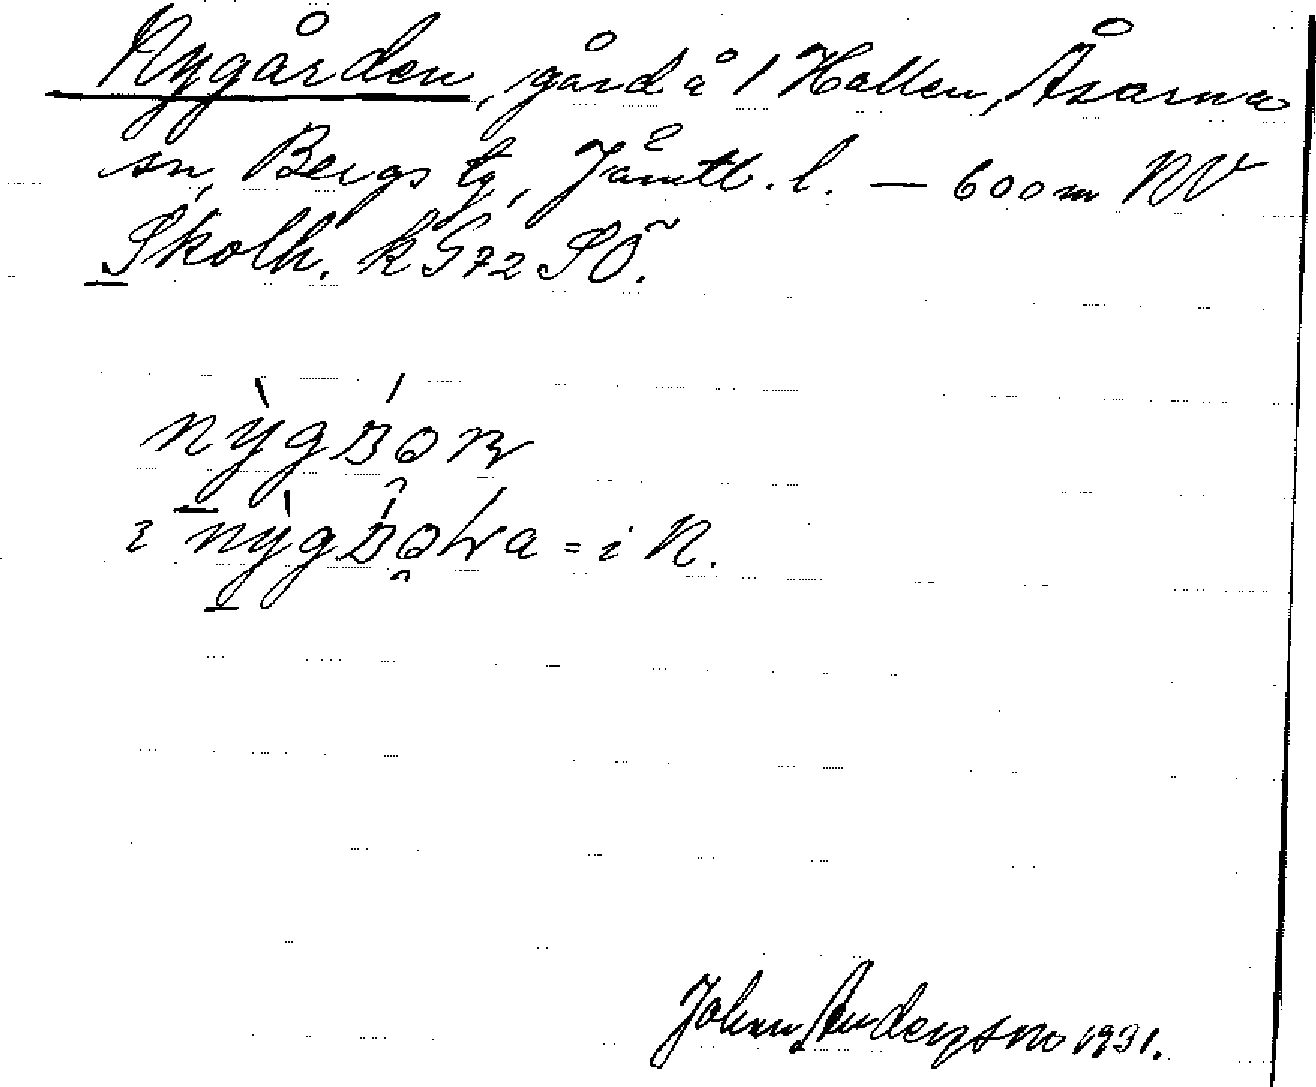 Nygården, gård å 1 Hallen, Åsarna
sn, Bergs tg, Jämtl. l. — 600 m NV
Skolh. k G72 SÖ.
i = i N.
Johan Andersson 1931.